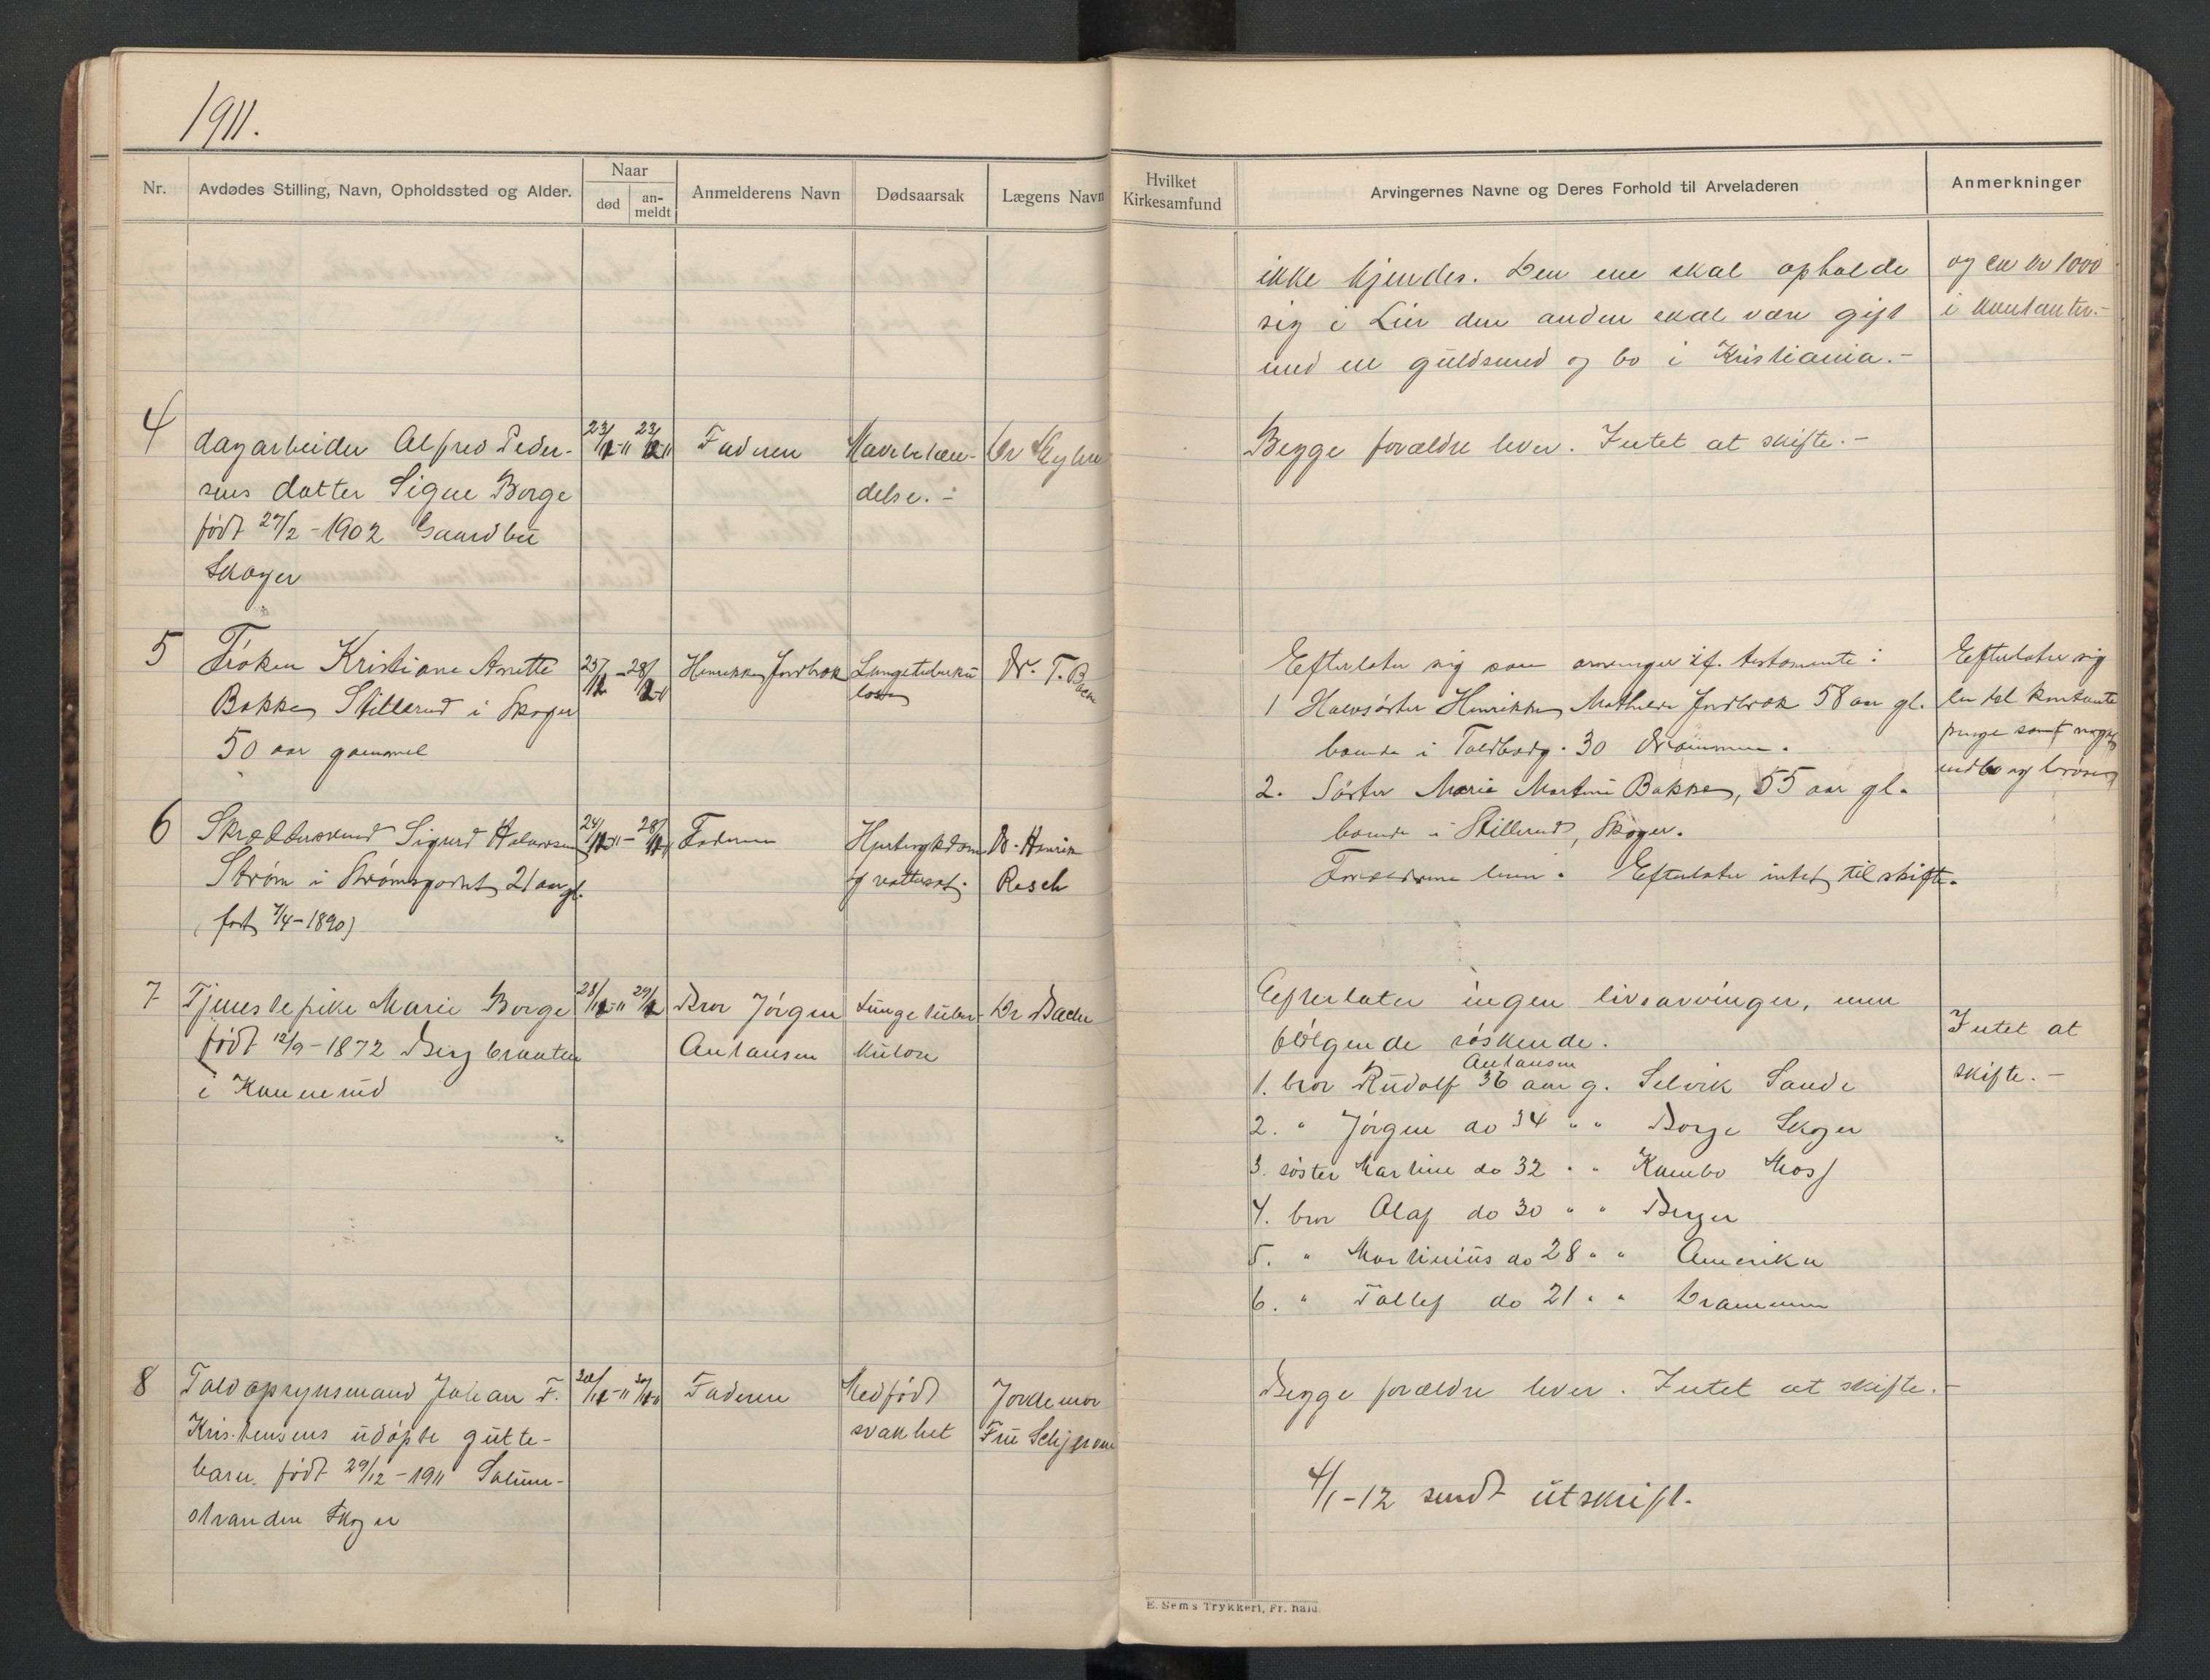 1911.
Nr.
Avdødes Stilling, Navn, Opholdssted og Alder.
Naar
død
an-
meldt
Anmelderens Navn
Dødsaarsak
Lægens Navn
Hvilket
Kirkesamfund
Arvingernes Navne og Deres Forhold til Arveladeren
Anmerkninger
ikke kjendes. Den ene skal opholde
sig i Lier den anden skal være gift
med en guldsmed og bo i Kristiania.-
og ca kr 1000
i kontanter.-
4
dagarbeider Alfred Peder-
sens datter Signe Borge
født 27/2-1902 Gaardbu
Skoger
23/12-11 23/12-11
Faderen
Mavebetæn-
delse.-
Dr
Begge forældre lever. Intet at skifte.-
5
Frøken Kristiane Anette
Bakke, Stillerud i Skoger
50 aar gammel
25/12-28/12-11
Henrikke Jordbræk
Lungetuberku
lose
Dr. T. Bache
Efterlater sig som arvinger if. testamente:
1 Halvsøster Henrikke Mathilde Jordbræk 58 aar gl.
boende i Toldbodg. 30 Drammen.
2. Søster Marie Martine Bakke, 55 aar gl.
boende i Stillerud, Skoger.
Efterlater sig
en del kontante
penge samt noget
indbo og løsøre
6
Skræddersvend Sigurd Halvorsen
Strøm i Strømsgodset, 21 aar gl.
(født 7/4-1890)
24/12-11-28/12-11
Faderen
Hjertesykdom
og vattersot.
Dr. Henrik
Rasch
Forældrene lever. Efterlater intet til skifte.
7
Tjenestepike Marie Borge
født 12/9-1872 Bergbraaten
i Konnerud
28/12-11 29/12
Bror Jørgen
Antonsen
Lungetuber-
kulose
Dr Bache
Efterlater ingen livsarvinger, men
følgende søskende.
Antonsen
1. bror Rudolf 36 aar g. Selvik Sande
2. " Jørgen do 34 " " Borge Skoger
3. søster Martine do 32 " " Kambo Moss
4. bror Olaf do 30 " " Berger
5. " Martinius do 28 " " Amerika
6. " Tollef do 21 " " Drammen
Intet at
skifte.-
8
Toldopsynsmand Johan F.
Kristensens udøpte gutte-
barn. født 29/12-1911 Solum-
stranden Skoger
30/12-11 30/12-11
Faderen
Medfødt
svakhet
Jordemor
Fru
Begge forældre lever. Intet at skifte.-
4/1-12 sendt utskrift.
E. Sems Trykkeri, Fr. hald.